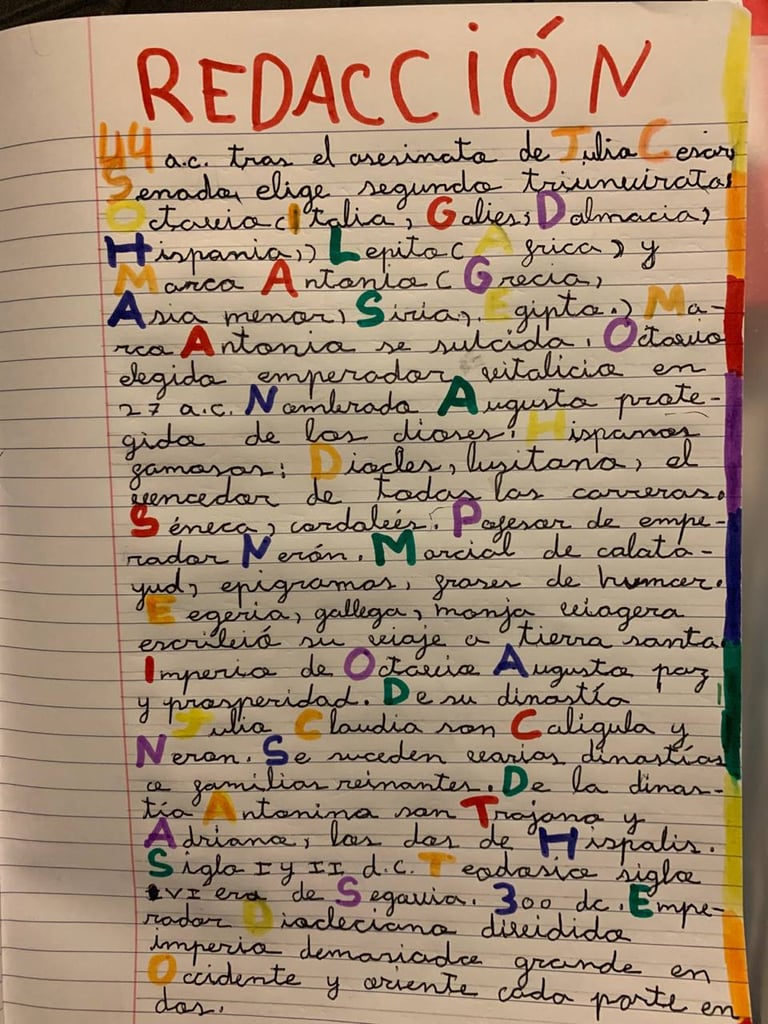 REDACCIÓN
44 a.c. tras el asesinato de Julio Cesar
Senado, elige segundo triunvirato:
Octavio (Italia, Galies, Dalmacia,
Hispania,) Lepito (Africa) y
Marco Antonio (Grecia,
Asia menor, Siria, Egipto.) Ma-
rco Antonio se suicida. Octavio
elegido emperador vitalicio en
27 a.c. Nombrado Augusto prote-
gido de los dioses. Hispanos
famosos: Diocles, lusitano, el
vencedor de todas las carreras.
Séneca, cordobés. Pofesor de empe-
rador Nerón. Marcial de calata-
yud, epigramas, frases de humor.
E Egeria, gallega, monja viagera
escribió su viaje a tierra santa.
Imperio de Octavio Augusto paz
y prosperidad. De su dinastía
Julio Claudia son Calígula y
Neron. Se suceden varias dinastías
o familias reinantes. De la dinas-
tía Antonina son Trajano y
Adriano, los dos de Hispalis.
Siglo I y II d.c. Teodosio siglo
VI era de Segovia. 300 dc. Empe-
rador Diocleciano dividido
imperio demasiado grande en
Occidente y oriente cada parte en
dos.